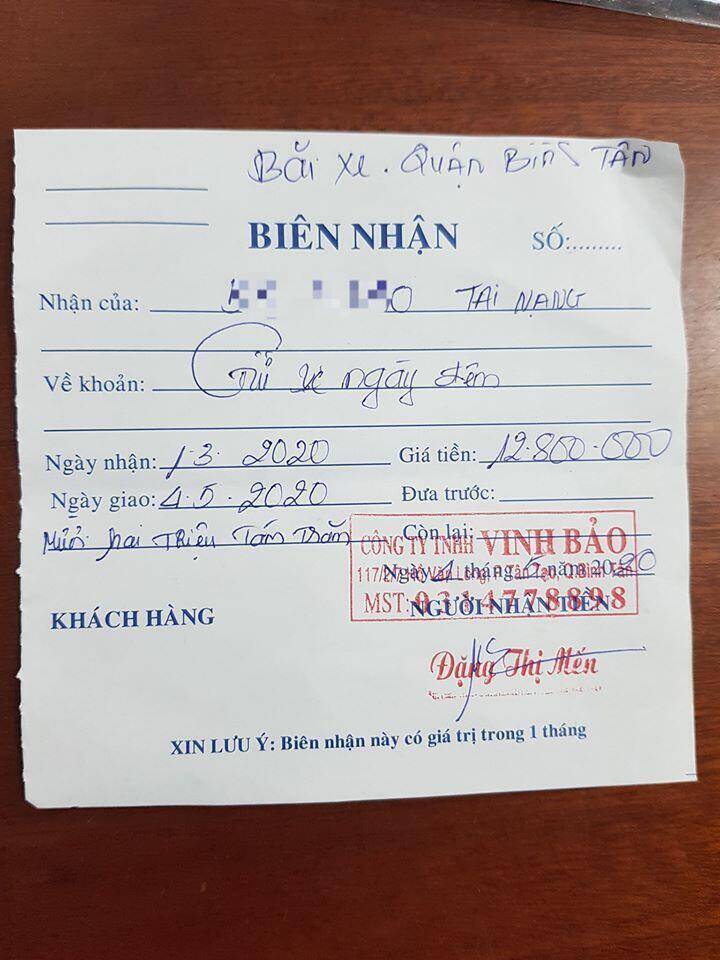 Bãi xe. QUẬN BÌNH TÂN
BIÊN NHẬN SỐ:........
Nhận của: TAI NẠNG
Về khoản: Gửi xe ngày đêm
Ngày nhận: 1.3.2020 Giá tiền: 12.800.000
Ngày giao: 4.5.2020 Đưa trước:
Mười hai Thiệu Tám Trăm Còn lại:
CÔNG TY TNHH VINH BẢO
117/2/7 Hồ Văn Long, P. Tân Tạo, Q.Bình Tân
Ngày 4 tháng 5 năm 2020
MST: 0314778898
KHÁCH HÀNG NGƯỜI NHẬN TIỀN
Đặng Thị Mến
XIN LƯU Ý: Biên nhận này có giá trị trong 1 tháng